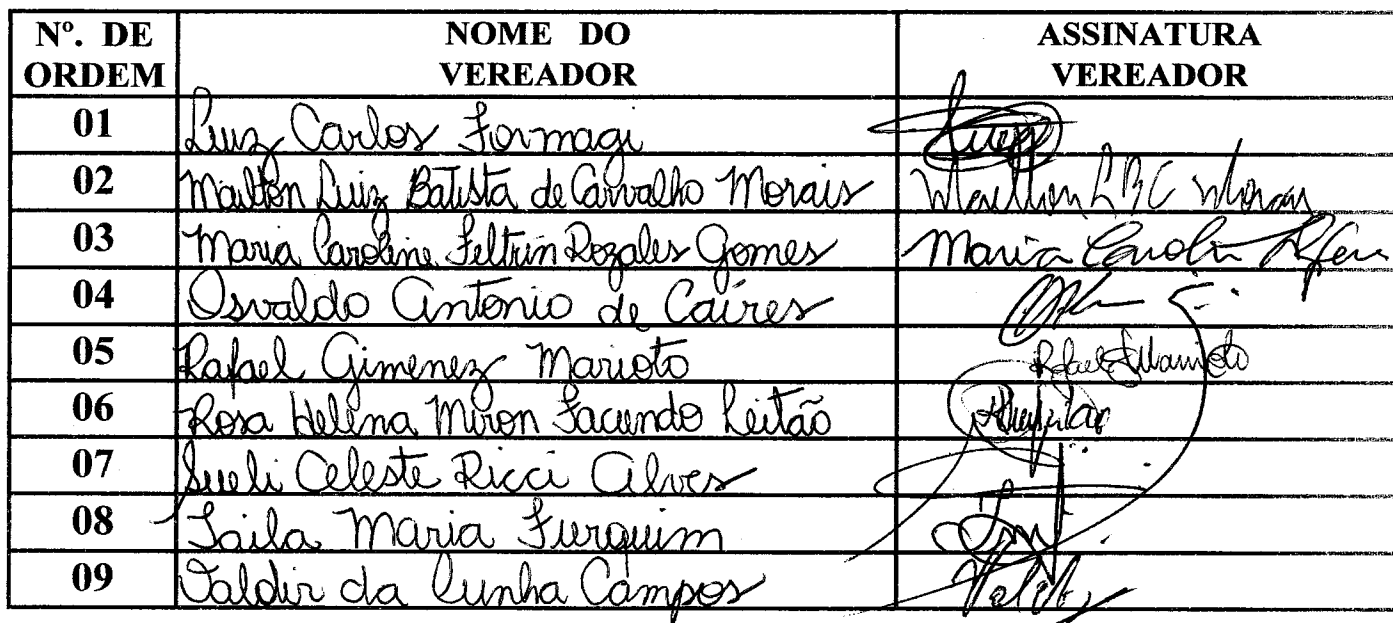 Nº. DE ORDEM NOME DO VEREADOR ASSINATURA VEREADOR
01 Luiz Carlos Formagi
02 Mailton Luiz Batista de Carvalho Morais
03 Maria Caroline Feltrin Rozales Gomes
04 Osvaldo Antonio de Caíres
05 Rafael Gimenez Marioto
06 Rosa Helena Miron Facundo Leitão
07 Sueli Celeste Ricci Alves
08 Taila Maria Furquim
09 Valdir da Cunha Campos